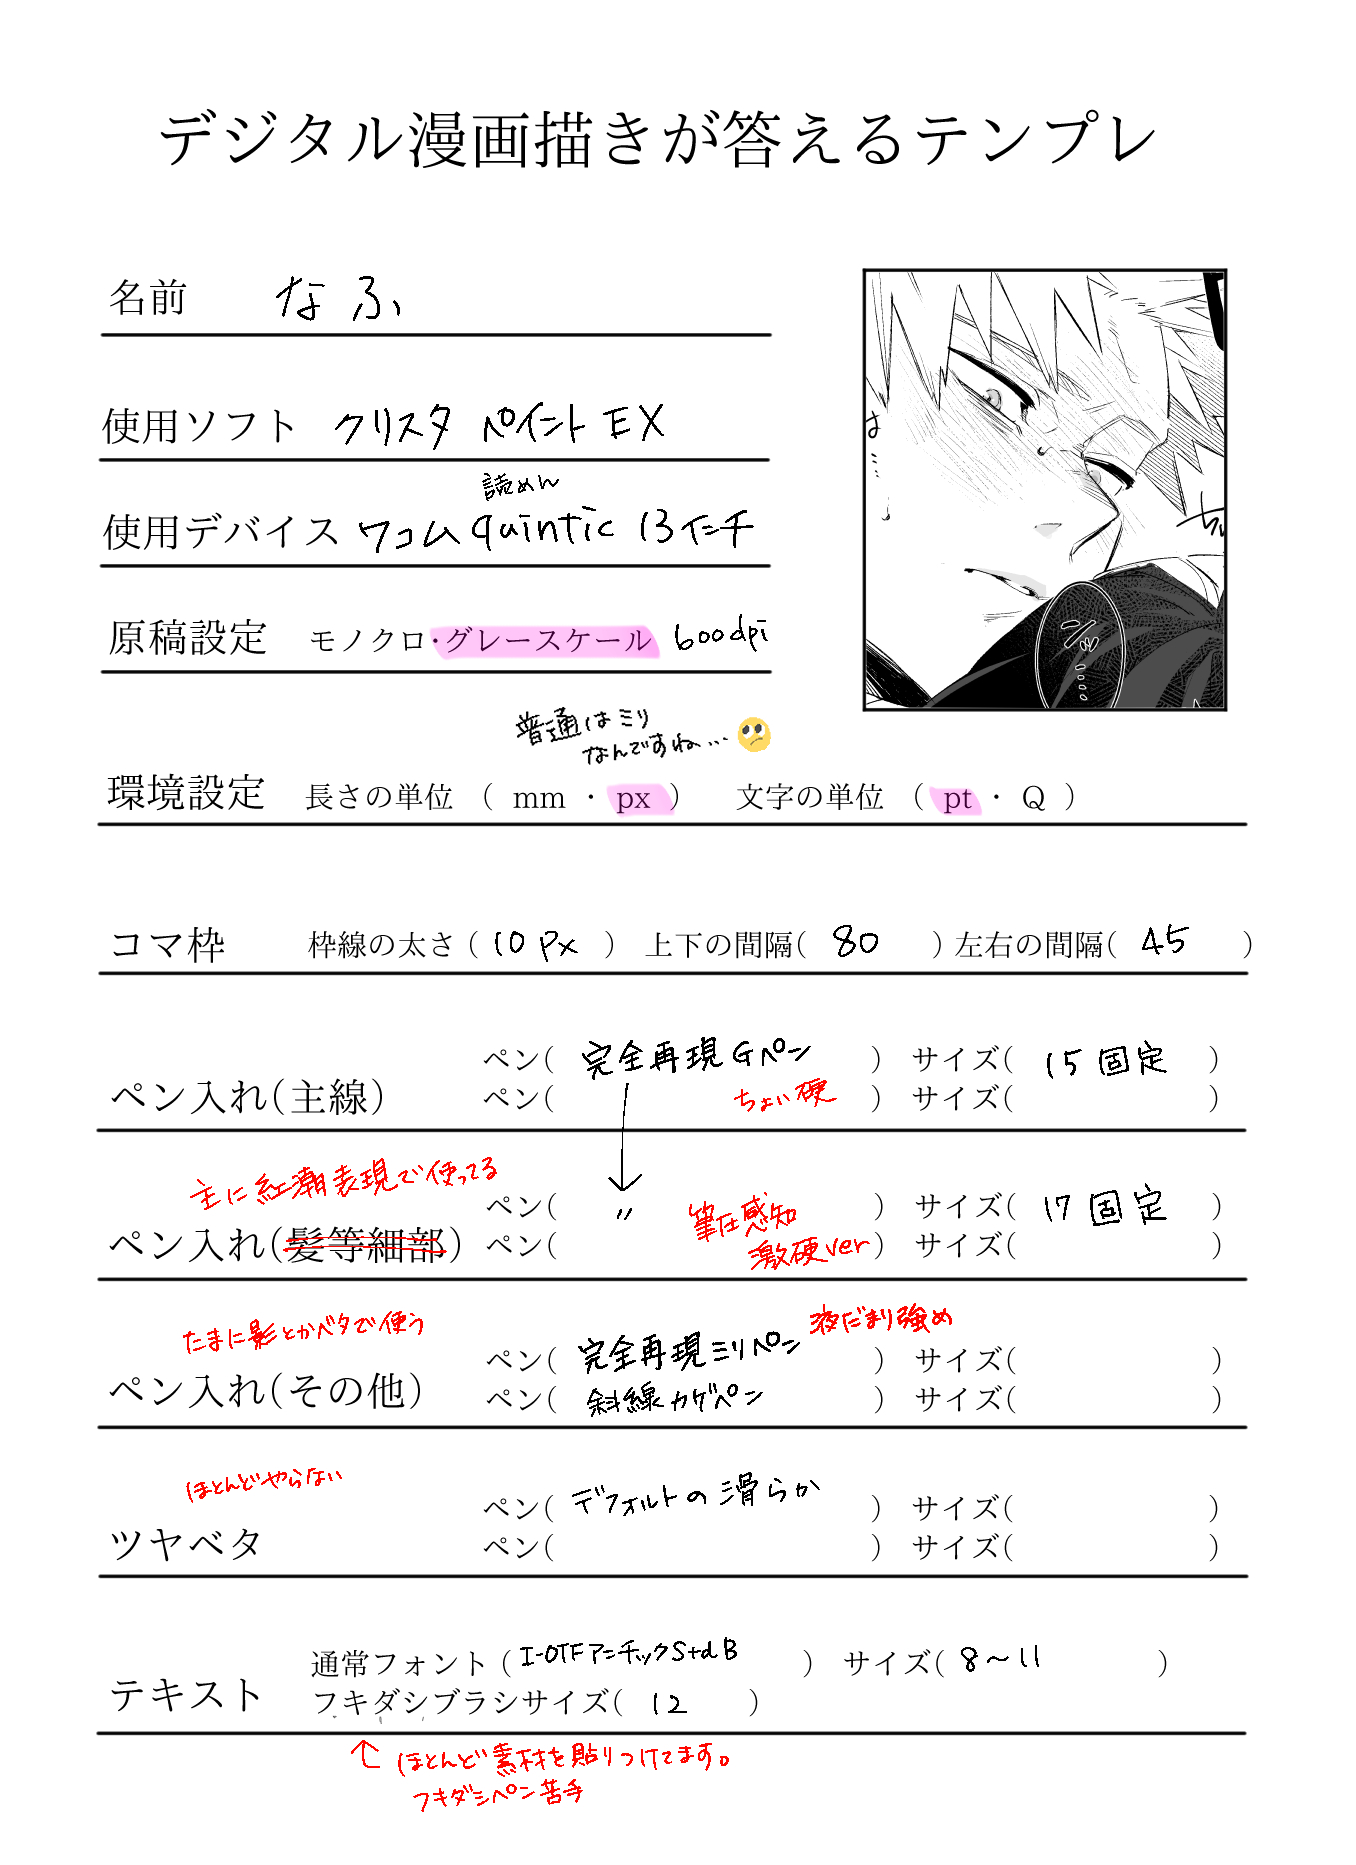 デジタル漫画描きが答えるテンプレ
名前 なふ
使用ソフト クリスタ ペイント EX
読めん
使用デバイス ワコム quintic 13インチ
原稿設定 モノクロ・グレースケール 600dpi
普通はミリ
なんですね…🙄
環境設定 長さの単位 ( mm ・ px ) 文字の単位 ( pt ・ Q )
は…
ンッ……
コマ枠 枠線の太さ ( 10 px ) 上下の間隔( 80 ) 左右の間隔( 45 )
ペン( 完全再現Gペン ) サイズ( 15 固定 )
ペン入れ(主線) ペン( ちょい硬 ) サイズ( )
主に紅潮表現で使ってる
ペン( 〃 ) サイズ( 17 固定 )
筆圧感知
ペン入れ(髪等細部) ペン( 激硬ver ) サイズ( )
たまに影とかベタで使う 液だまり強め
ペン( 完全再現ミリペン ) サイズ( )
ペン入れ(その他) ペン( 斜線カゲペン ) サイズ( )
ほとんどやらない
ペン( デフォルトの滑らか ) サイズ( )
ツヤベタ ペン( ) サイズ( )
通常フォント ( I-OTFアンチックStd B ) サイズ( 8〜11 )
テキスト フキダシブラシサイズ( 12 )
↑ ほとんど素材を貼りつけてます。
フキダシペン苦手